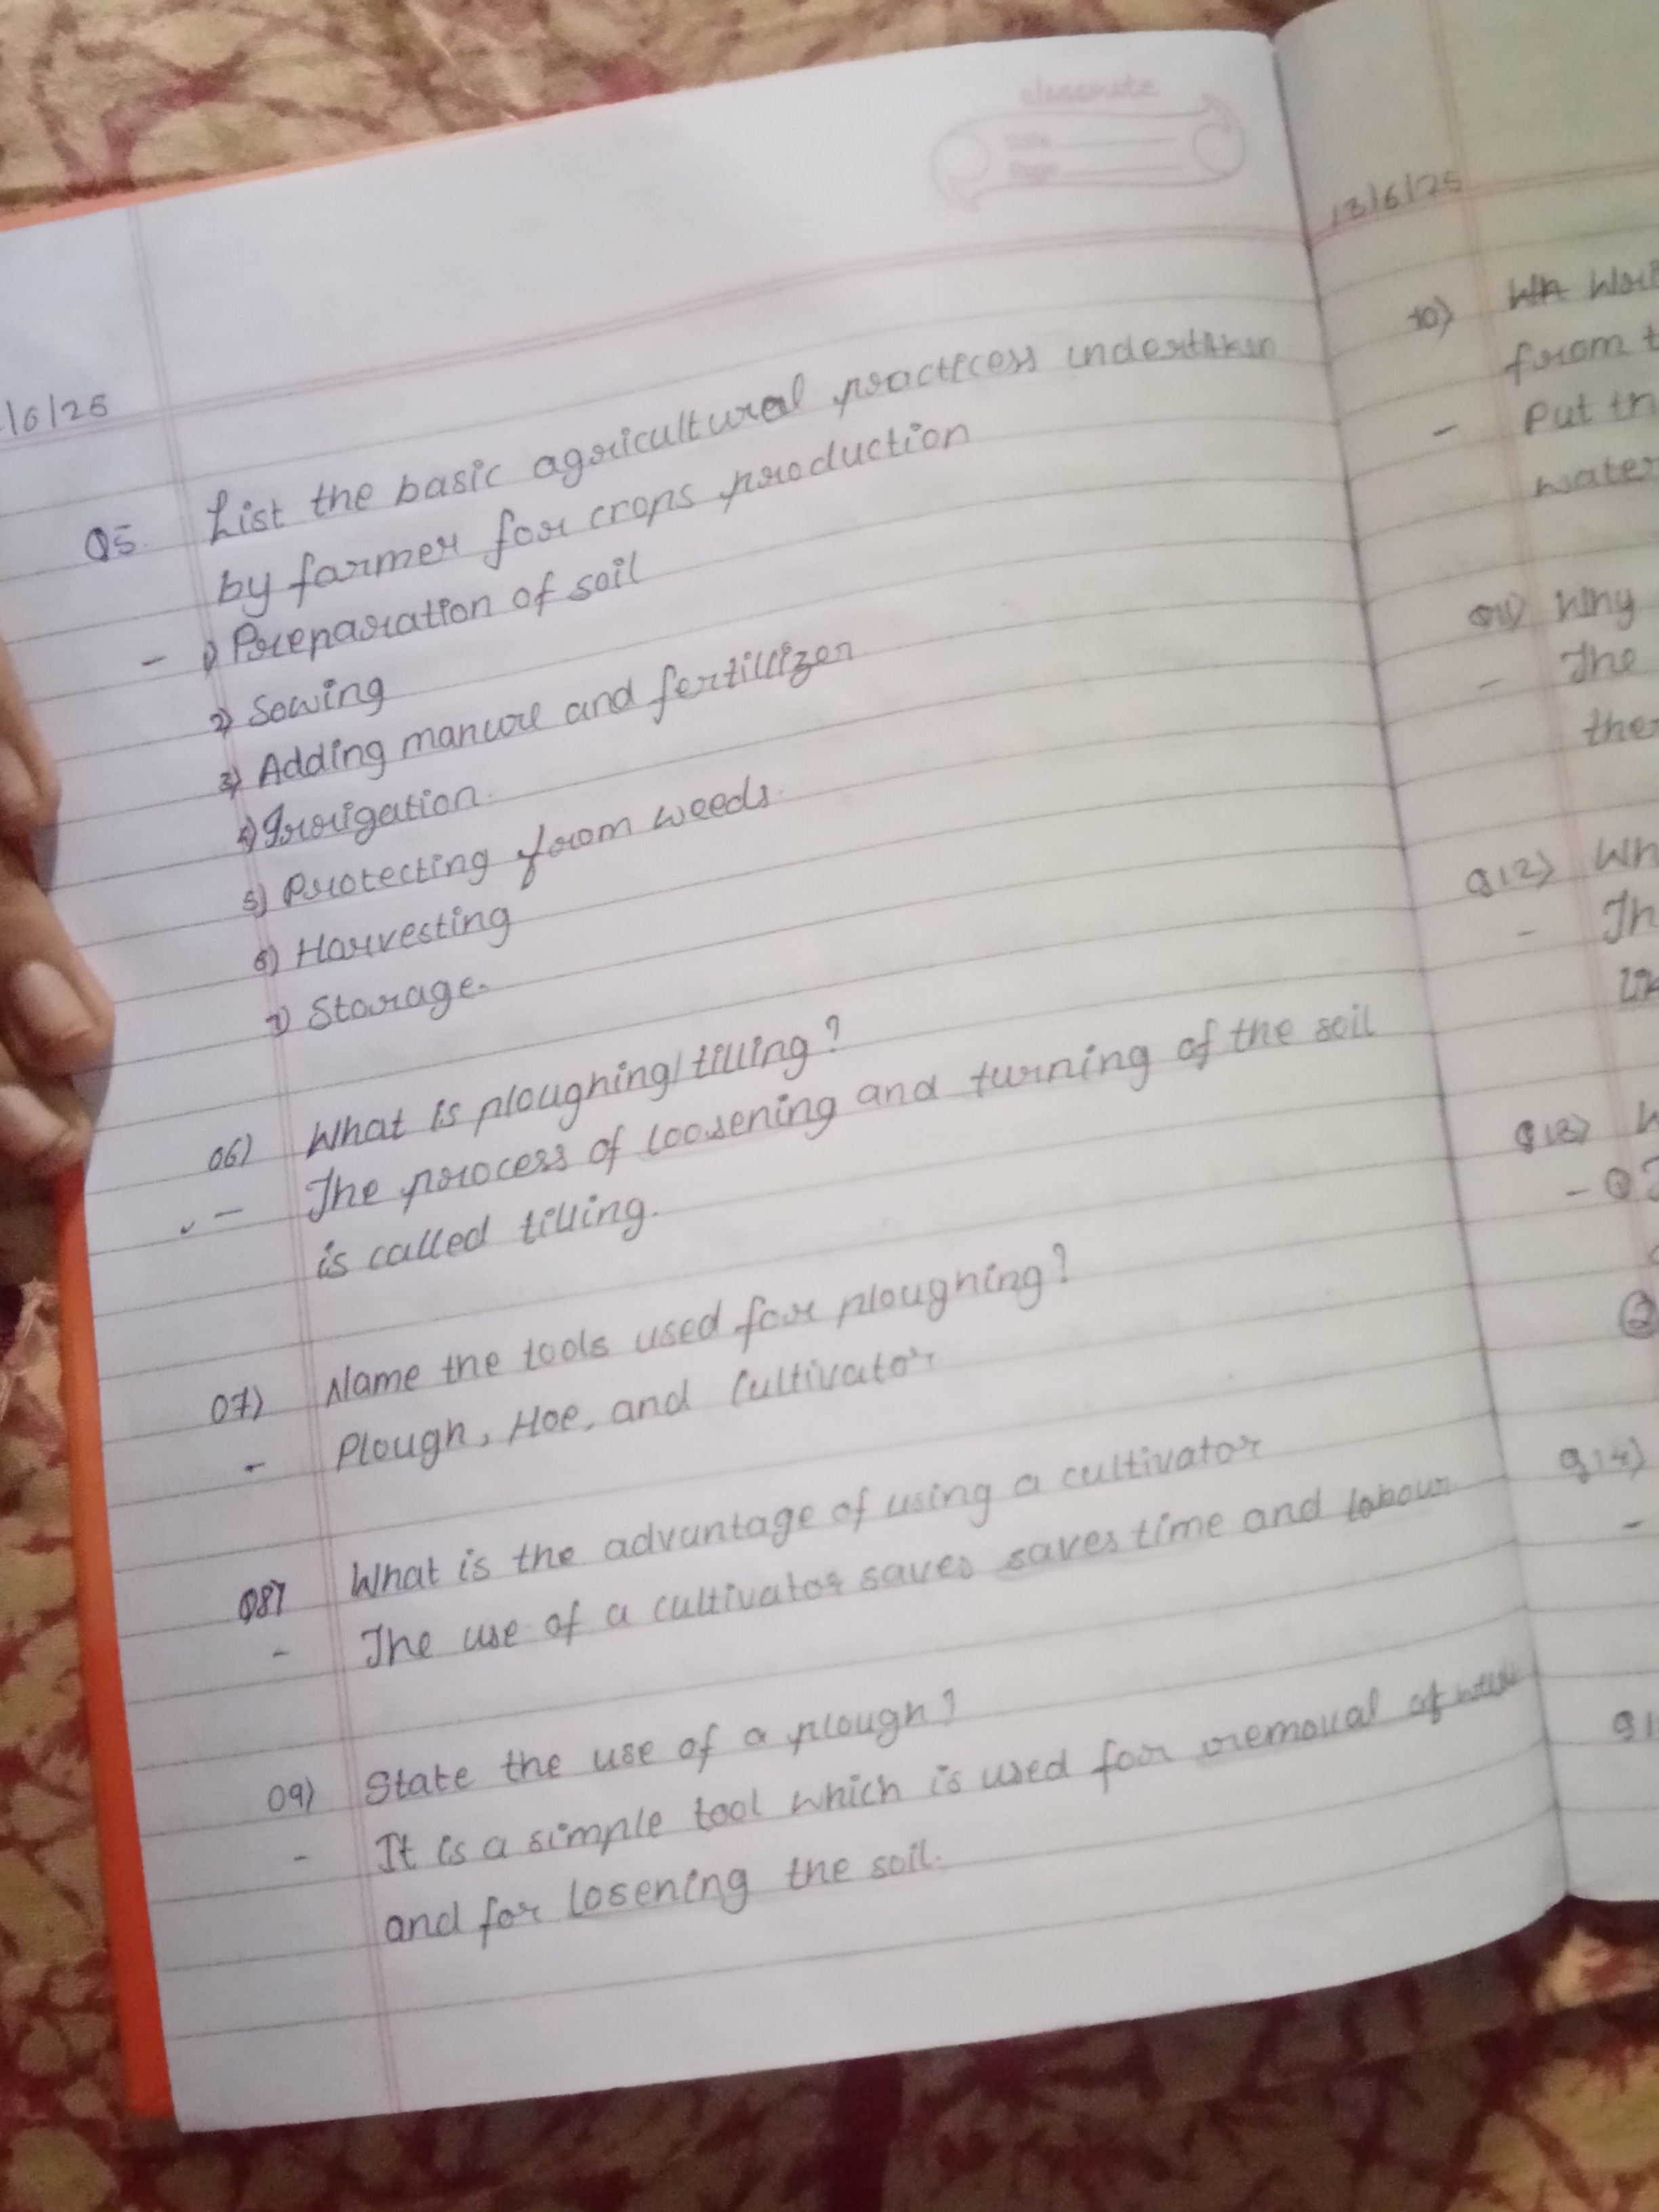 classmate
Date
Page
/6/25
Q5. List the basic agricultural practicess undertaken
by farmer for crops production
- 1) Preparation of soil
2) Sowing
3) Adding manure and fertillizer
4) Irrigation.
5) Protecting from weeds.
6) Harvesting
7) Storage.
Q6) What is ploughing/tilling?
- The process of loosening and turning of the soil
is called tilling.
Q7) Name the tools used for ploughing?
- Plough, Hoe, and Cultivator
Q8) What is the advantage of using a cultivator
- The use of a cultivator saves saves time and labour
Q9) State the use of a plough?
- It is a simple tool which is used for removal of
and for losening the soil.
13/6/25
10)
from
- Put
water
Q11) Why
- The
Q12)
-
Q13)
-
2
Q14)
-